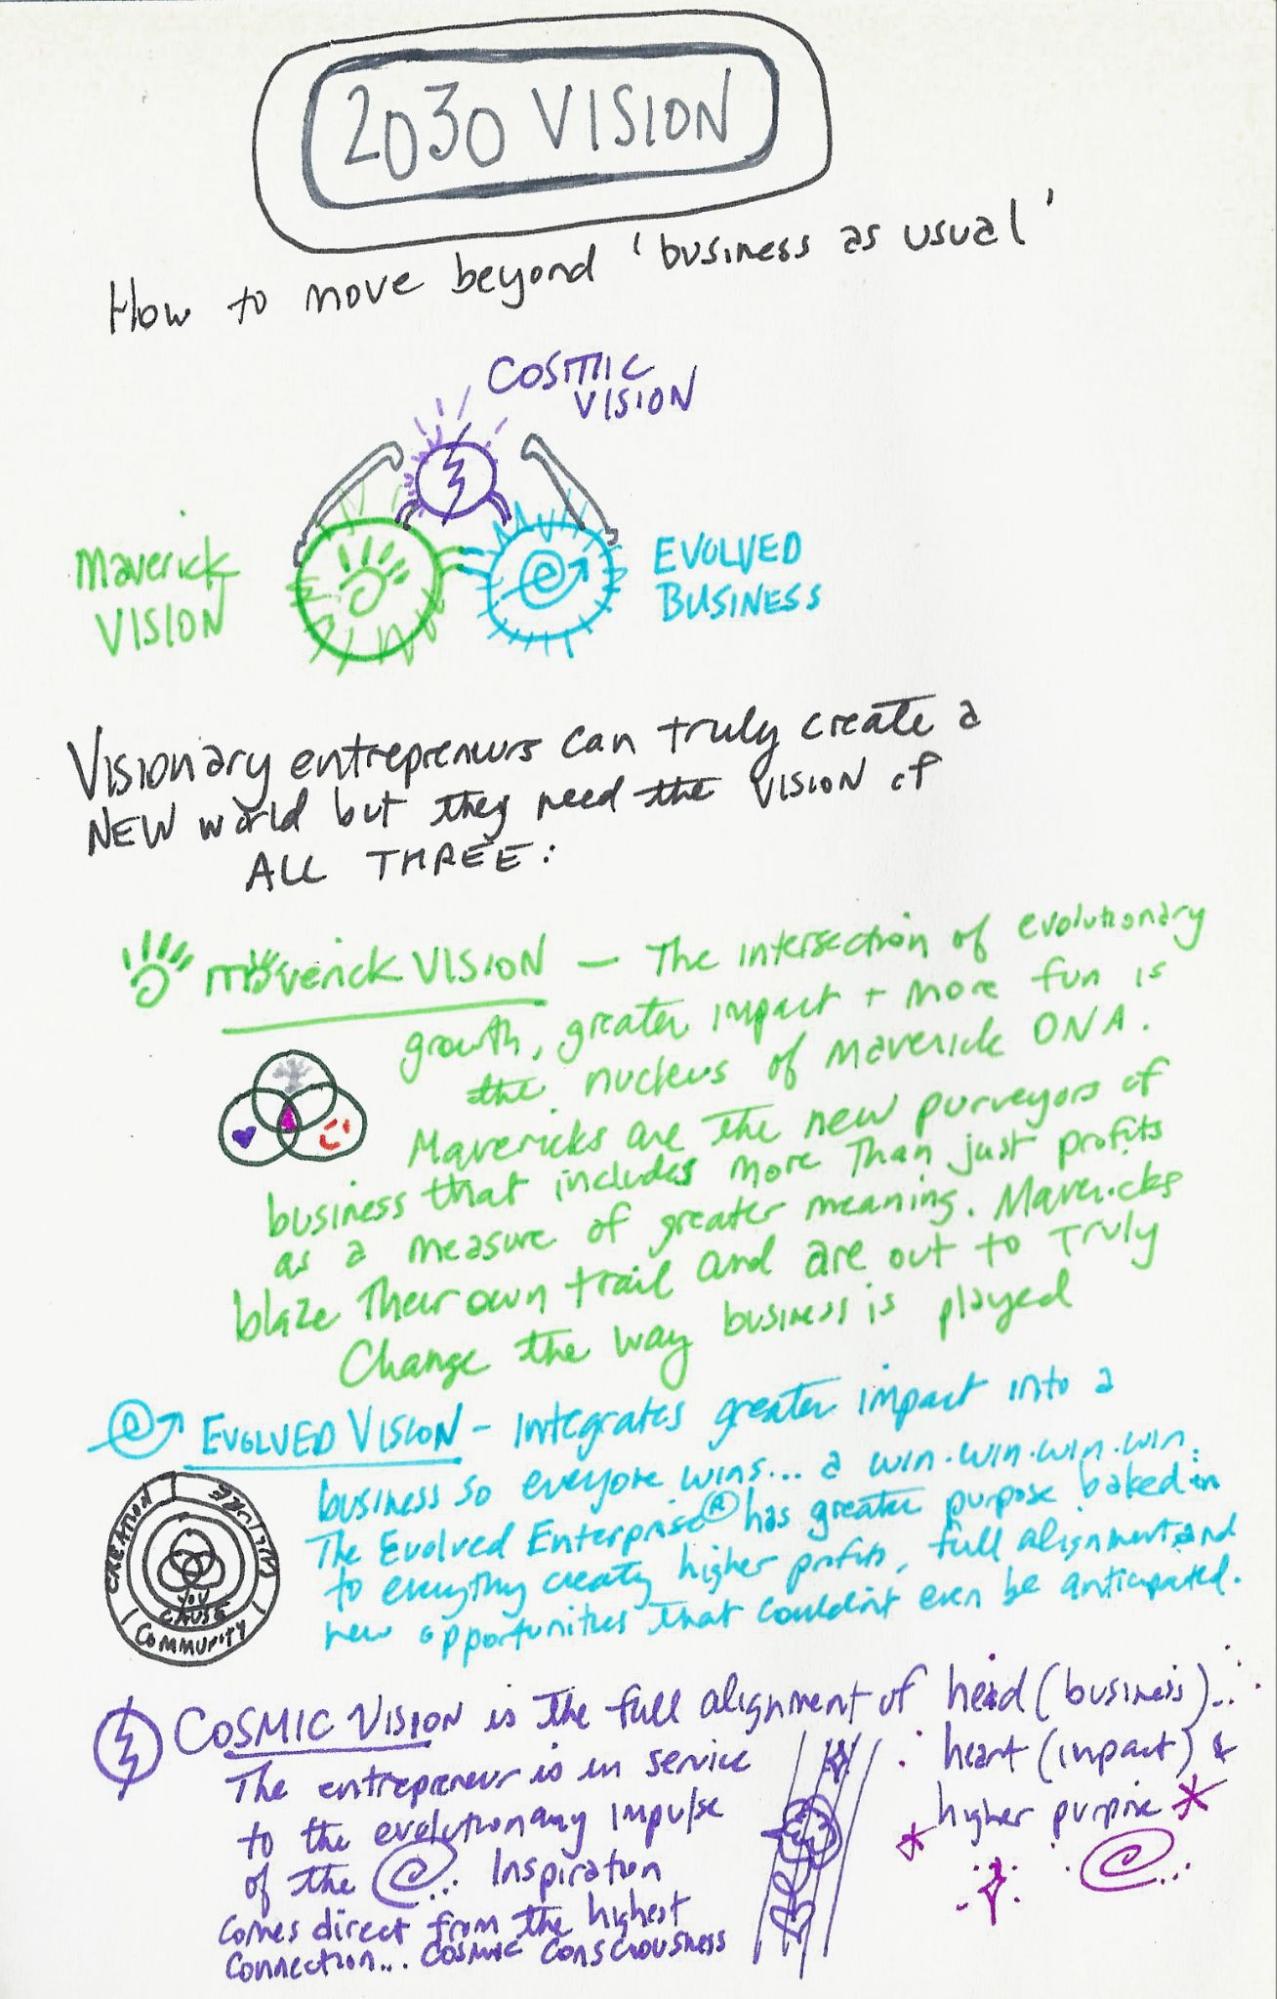 2030 VISION
How to move beyond 'business as usual'
COSMIC
VISION
Maverick
VISION
EVOLVED
BUSINESS
Visionary entrepreneurs can truly create a
NEW world but they need the VISION of
ALL THREE:
Maverick VISION — The intersection of evolutionary
growth, greater impact + more fun is
the nucleus of Maverick DNA.
Mavericks are the new purveyors of
business that includes more Than just profits
as a measure of greater meaning. Mavericks
blaze Their own trail and are out to Truly
Change the way business is played
EVOLVED VISION - Integrates greater impact into a
business so everyone wins... a win.win.win.win.
The Evolved Enterprise® has greater purpose baked in
to everything creating higher profits, full alignment and
new opportunities that couldn't even be anticipated.
CREATION
CULTURE
YOU
CAUSE
COMMUNITY
COSMIC VISION is the full alignment of head (business)...
heart (impact) &
higher purpose
The entrepreneur is in service
to the evolutionary impulse
of the ... Inspiration
comes direct from the highest
connection... cosmic consciousness